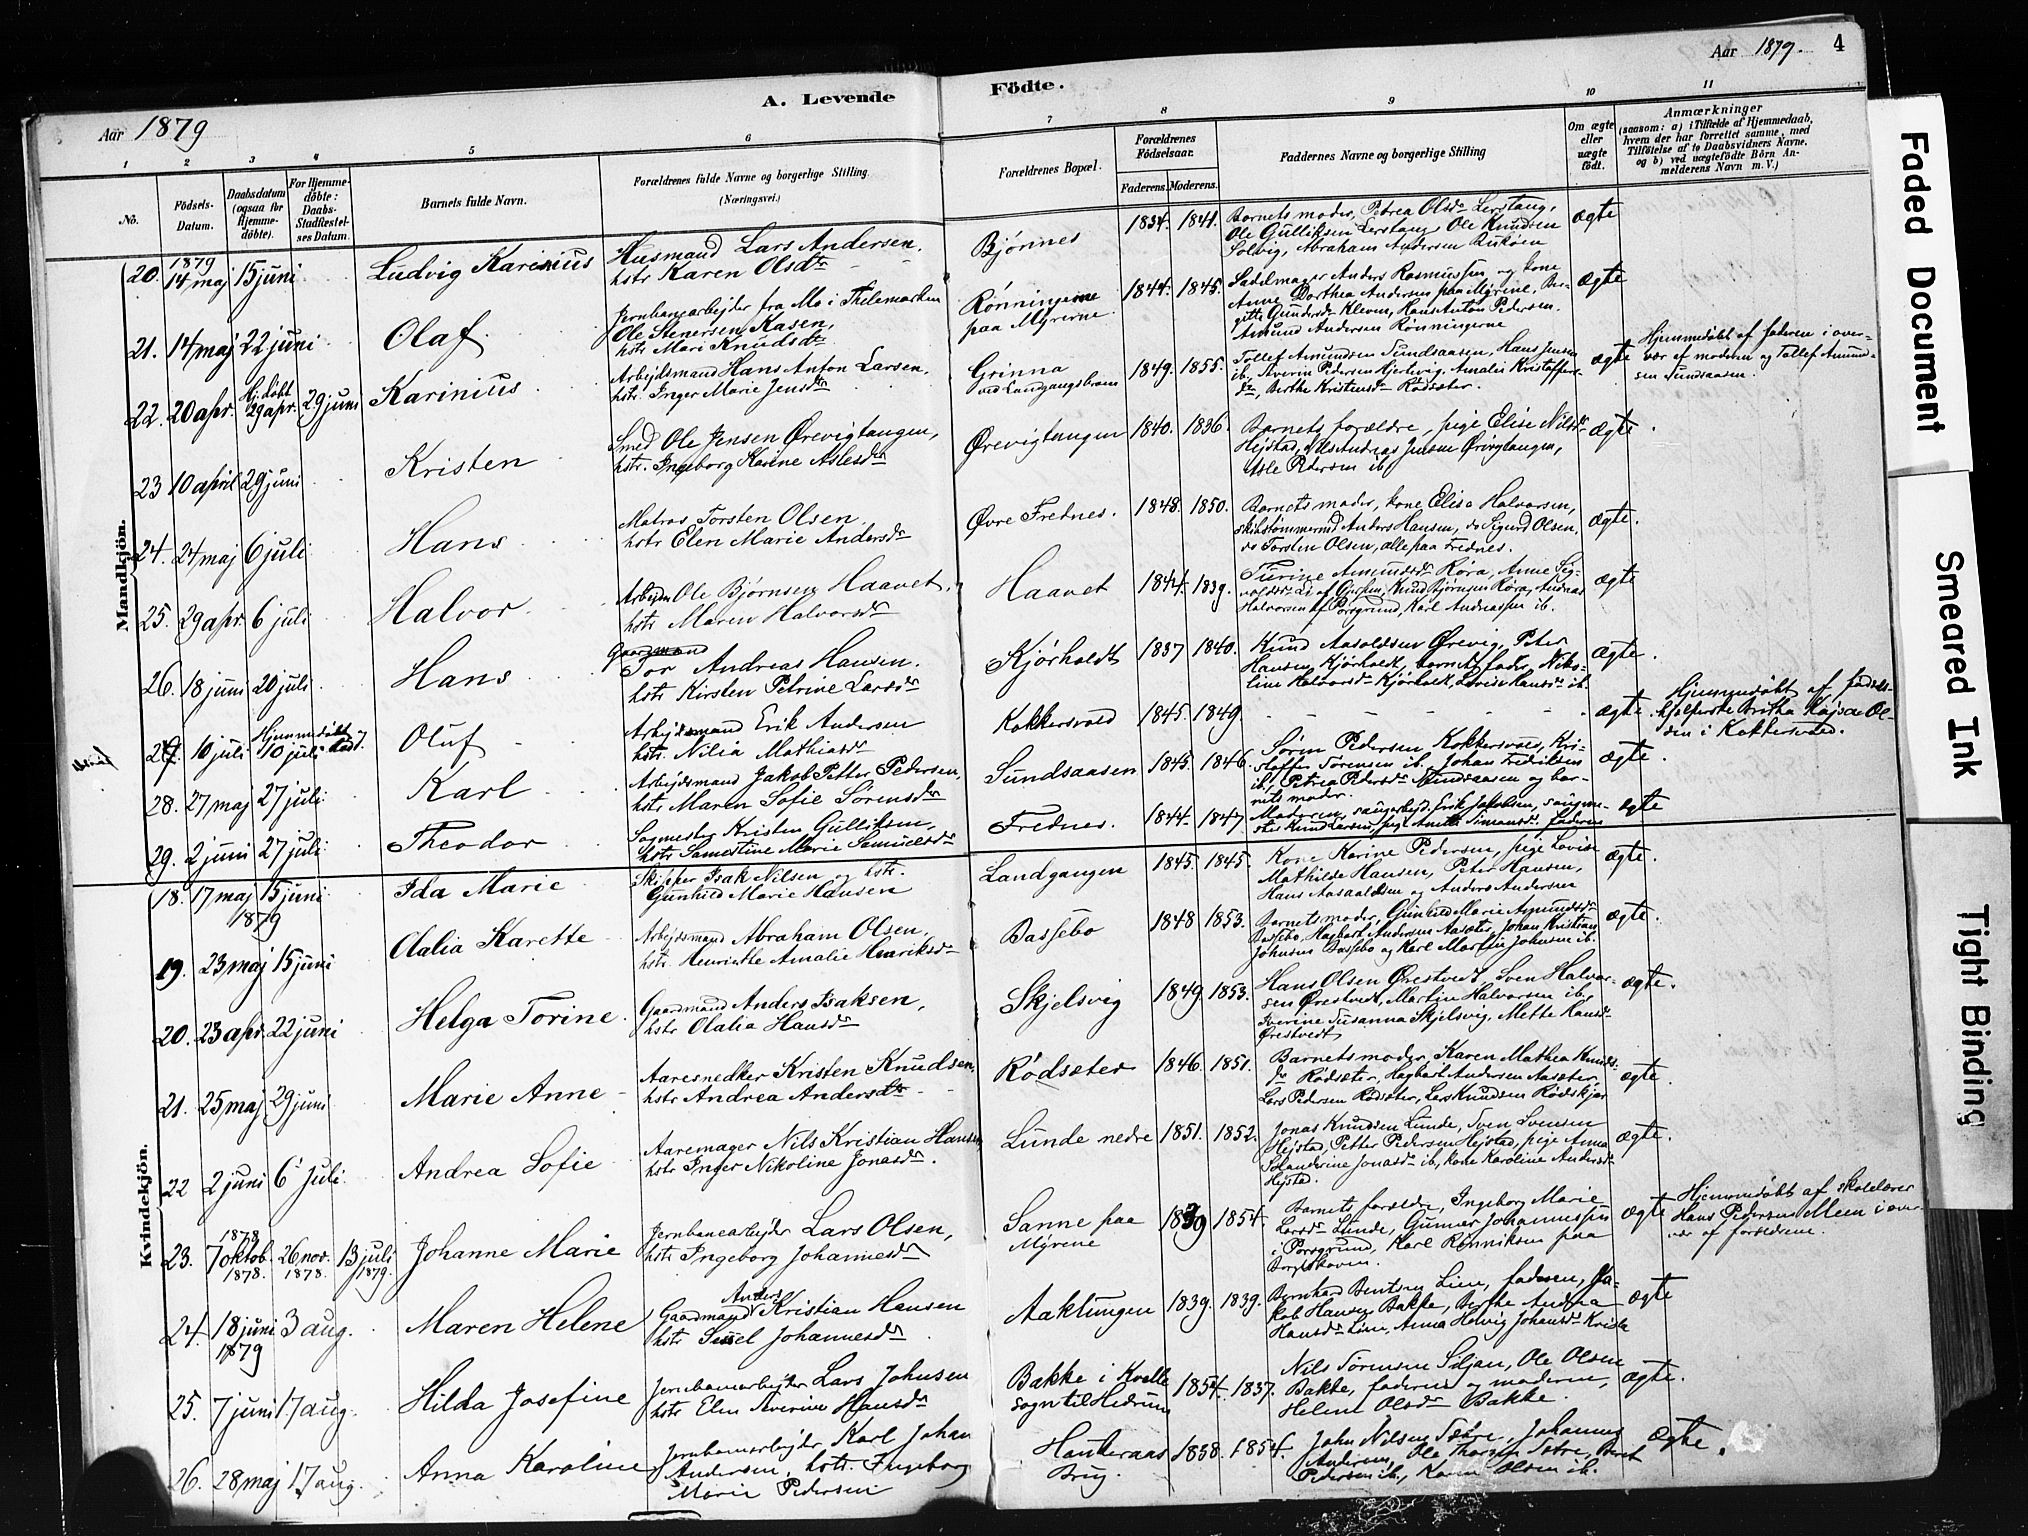 Aar 1879
A. Levende
Födte.
Aar 1879.
4
1
2
3
4
5
6
7
8
9
10
11
No.
Födsels-
Datum.
Daabsdatum
(ogsaa for
Hjemme-
döbte).
For Hjemme-
döbte:
Daabs-
Stadfæstel-
ses Datum.
Barnets fulde Navn.
Forældrenes fulde Navne og borgerlige Stilling
(Næringsvei.)
Forældrenes Bopæl.
Forældrenes
Födselsaar.
Faderens.
Moderens.
Faddernes Navne og borgerlige Stilling
Om ægte
eller
uægte
födt.
Anmærkninger
(saasom: a) i Tilfælde af Hjemmedaab,
hvem der har forrettet samme, med
Tilføielse af to Daabsvidners Navne,
og b) ved uægtefödte Börn An-
melderens Navn m. V.)
Mandkjön.
20. 1879 14 maj 15 juni Ludvig Karinius
Husmand Lars Andersen,
hstr Karen Olsdtr
Bjørnnes 1834. 1841.
Barnets moder, Petrea Olsdr Lerstang,
Ole Gulliksen Lerstang, Ole Knudsen
Solvig, Abraham Andersen
ægte
21. 14 maj 22 juni Olaf.
Jernbanearbejder fra Mo i Thelemarken
Ole Stenersen Kasen,
hstr Mari Knudsdtr
Rønningerne
paa Myrerne 1844. 1845.
Sadelmager Anders Rasmussen og kone
Anne Dorthea Andersen paa Myrene, Ber-
gitte Gundersdr Kleven, Hans Anton Pedersen,
Amund Andersen Rønningerne
ægte
22. 20 apr. Hj. döbt 29 apr. 29 juni Karinius
Arbejdsmand Hans Anton Larsen,
hstr. Inger Marie Jensdtr
Grinna
ved Landgangsbroen 1849. 1855.
Tollef Amundsen Sundsaasen, Hans Jensen
ib. Severin Pedersen Hjertvig, Amalie Kristoffers-
dr, Berthe Kristensdr Rødsæter.
ægte
Hjemmedöbt af faderen i over-
vær af moderen og Tollef Amund-
sen Sundsaasen.
23 10 april 29 juni Kristen
Smed Ole Jensen Ørevigtangen,
hstr. Ingeborg Karine Aslesdr
Ørevigtangen 1840. 1836.
Barnets forældre, pige Elise Nilsdr
Hejstad, Nils Andreas Jensen Ørevigtangen,
Asle Pedersen ib.
ægte.
24. 24 maj 6 juli Hans
Matros Torsten Olsen,
hstr Elen Marie Andersdr
Øvre Frednes. 1848. 1850.
Barnets moder, kone Elise Halvorsen,
skibstømmermd Anders Hansen, do Sigurd Olsen,
do Torsten Olsen, alle paa Frednes.
ægte.
25. 29 apr. 6 juli Halvor
Arbejdsm Ole Bjørnsen Haavet,
hstr Maren Halvorsdr
Haavet 1844. 1839.
Turine Amundsdr Røra, Anne Sig-
valdsdr Li af Gjerpen, Knud Bjørnsen Røra, Andreas
Halvorsen af Porsgrund, Karl Andreassen ib.
ægte
26. 18 juni 20 juli Hans
Gaardmand
Tor Andreas Hansen,
hstr Kirsten Petrine Larsdr
Kjørholdt 1837 1840.
Knud Aasoldsen Ørevig, Peter
Hansen Kjørholdt, barnets fader, Niko-
line Halvorsdr Kjørholt, Lovise Hansdr ib.
ægte.
27. 10 juli Hjemmedöbt 10 juli Oluf
Arbejdsmand Erik Andersen
hstr. Nilia Mathiasdr
Kokkersvold 1845. 1849.
ægte.
Hjemmedöbt af födsels-
hjælperske Britha Kajsa Ol-
sen i Kokkersvold.
28. 27 maj 27 juli Karl
Arbejdsmand Jakob Petter Pedersen,
hstr Maren Sofie Sörensdr
Sundsaasen 1845. 1846.
Søren Pedersen Kokkersvold, Kri-
stoffer Sørensen ib., Johan Fredriksen
ib., Petrea Pedersdr Sundsaasen og bar-
nets moder.
ægte.
29. 2 juni 27 juli Theodor
Sagmester Kristen Gulliksen,
hstr Samestine Marie Samuelsdr
Frednes. 1844. 1847.
Moderen, saugarbejd. Erik Jakobsen, saugme-
ster Knud Larsen, pige Anette Simonsdr, faderen
ægte
Kvindekjön.
18. 17 maj 1879 15 juni Ida Marie
Skipper Isak Nilsen og hstr.
Gunhild Marie Hansen
Landgangen 1845. 1845.
Kone Karine Pedersen, pige Lovise
Mathilde Hansen, Peter Hansen,
Hans Aasoldsen og Anders Andersen
ægte.
19. 23 maj 15 juni Olalia Karette
Arbejdsmand Abraham Olsen,
hstr. Henriette Amalie Henriksdr
Bassebo 1848 1853.
Barnets moder, Gunhild Marie Asmundsdr
Bassebo, Hagbart Andersen Aasæter, Johan Kristian
Johnsen Bassebo og Karl Martin Johnsen ib.
ægte.
20. 23 apr. 22 juni Helga Torine
Gaardmand Anders Isaksen,
hstr Olalia Hansdr
Skjelsvig 1849 1853.
Hans Olsen Ørestvedt, Sven Halvor-
sen Ørestvedt, Martin Halvorsen ib.,
Iverine Susanna Skjelsvig, Mette Hansdr
Ørestvedt
ægte.
21. 25 maj 29 juni Marie Anne
Aaresnedker Kristen Knudsen,
hstr Andrea Andersdtr
Rödsæter 1846. 1851.
Barnets moder, Karen Mathea Knuds-
dr Rødsæter, Hagbart Andersen Aasæter,
Lars Pedersen Rødsæter, Lars Knudsen Rødskjær
ægte.
22 2 juni 6 juli Andrea Sofie
Aaremager Nils Kristian Hansen,
hstr Inger Nikoline Jonasdr.
Lunde nedre 1851. 1852.
Jonas Knudsen Lunde, Sven Svensen
Hejstad, Petter Pedersen Hejstad, pige Anna
Solanderine Jonasdr ib., kone Karoline Andersdr
Hejstad.
ægte.
23. 1878 7 oktob. 1878. 26 nov. 1878. 13 juli 1879. Johanne Marie
Jernbanearbejder Lars Olsen,
hstr Ingeborg Johannesdr
Sanne paa
Myrene 1839 1854.
Barnets forældre, Ingeborg Marie
Larsdr Lunde, Gunnar Johannessen
i Porsgrund, Karl Henriksen paa
Borgeskoven.
ægte
Hjemmedöbt af skolelærer
Hans Pedersen Meen i over-
vær af forældrene.
24. 18 juni 1879 3 aug. Maren Helene
Anders
Gaardmand Kristian Hansen
hstr Sissel Johannesdr
Aaktungen 1839. 1839.
Bernhad Berntsen Lien, faderen, Ja-
kob Hansen Bakke, Berthe Andrea
Hansdr Lien, Anna Helvig Johansdr
ægte
25. 7 juni 17 aug. Hilda Josefine
Jernbanearbejder Lars Johnsen
hstr Elen Severine Hansdr
Bakke i Kvelle
sogn til Hedrum 1854. 1837.
Nils Sörensen Siljan, Ole Olsen
Bakke, faderen og moderen,
Helene Olsdr Bakke.
ægte.
26. 28 maj 17 aug. Anna Karoline
Jernbanearbejder Karl Johan
Andersen, hstr. Ingeborg
Marie Pedersen
Hanteraas
Brug. 1858. 1854.
John Nilsen Sætre, Johannes
Andersen, Ole Thorsen Sætre,
Pedersen ib., Karen Olsen ib.
ægte.
Faded Document
Smeared Ink
Tight Binding